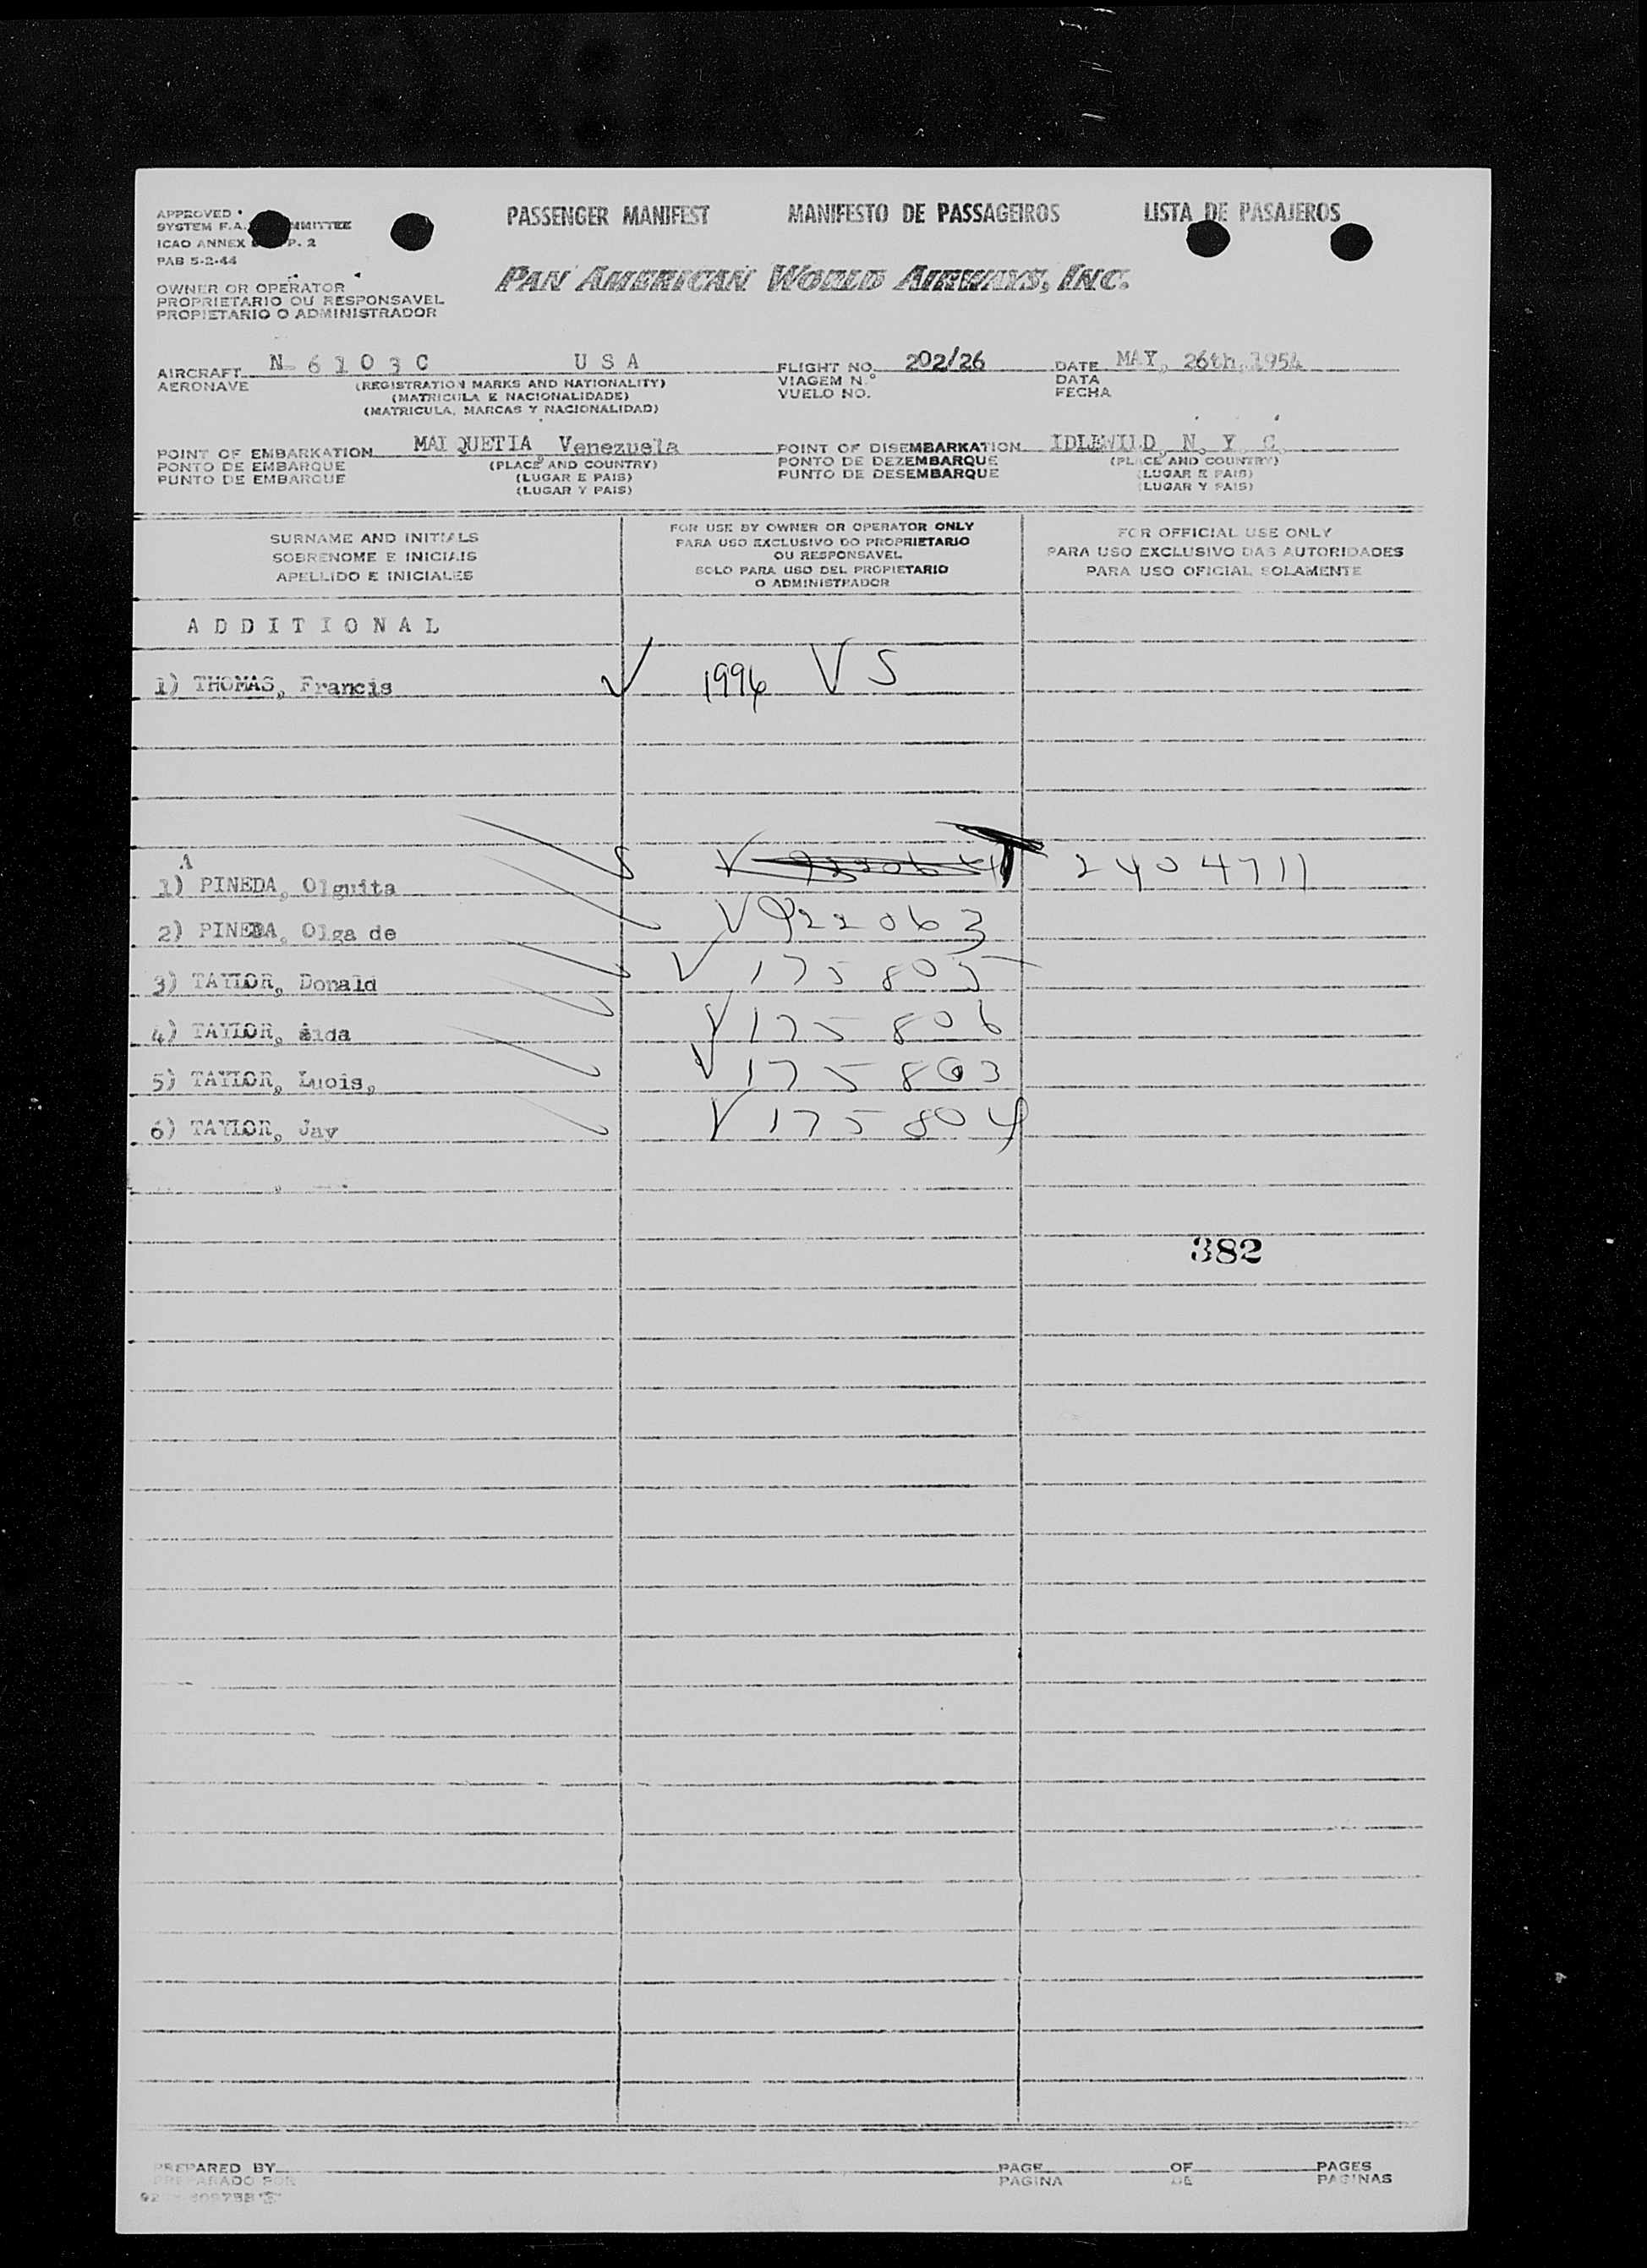 PASSENGER MANIFEST MANIFESTO DE PASSAGEIROS LISTA DE PASAJEROS
APPROVED
SYSTEM F.A.
ICAO ANNEX P. 2
PAB 5-2-44
PAN AMERICAN WORLD AIRWAYS, INC.
OWNER OR OPERATOR
PROPRIETARIO OU RESPONSAVEL
PROPIETARIO O ADMINISTRADOR
AIRCRAFT N- 6 1 0 3 C U S A FLIGHT NO. 202/26 DATE MAY, 26th, 1954
AERONAVE (REGISTRATION MARKS AND NATIONALITY) VIAGEM N.º DATA
(MATRICULA E NACIONALIDADE) VUELO NO. FECHA
(MATRICULA, MARCAS Y NACIONALIDAD)
POINT OF EMBARKATION MAIQUETIA, Venezuela POINT OF DISEMBARKATION IDLEWILD, N. Y. C.
PONTO DE EMBARQUE (PLACE AND COUNTRY) PONTO DE DEZEMBARQUE (PLACE AND COUNTRY)
PUNTO DE EMBARQUE (LUGAR E PAIS) PUNTO DE DESEMBARQUE (LUGAR E PAIS)
(LUGAR Y PAIS) (LUGAR Y PAIS)
SURNAME AND INITIALS
SOBRENOME E INICIAIS
APELLIDO E INICIALES
FOR USE BY OWNER OR OPERATOR ONLY
PARA USO EXCLUSIVO DO PROPRIETARIO
OU RESPONSAVEL
SOLO PARA USO DEL PROPIETARIO
O ADMINISTRADOR
FOR OFFICIAL USE ONLY
PARA USO EXCLUSIVO DAS AUTORIDADES
PARA USO OFICIAL SOLAMENTE
A D D I T I O N A L
1) THOMAS, Francis 1994 V S
A
1) PINEDA, Olguita 2404711
2) PINEDA, Olga de 922063
3) TAYLOR, Donald 175805
4) TAYLOR, Aida 175806
5) TAYLOR, Luois, 175803
6) TAYLOR, Jay 175804
382
PREPARED BY PAGE OF PAGES
PREPARADO POR PAGINA DE PAGINAS